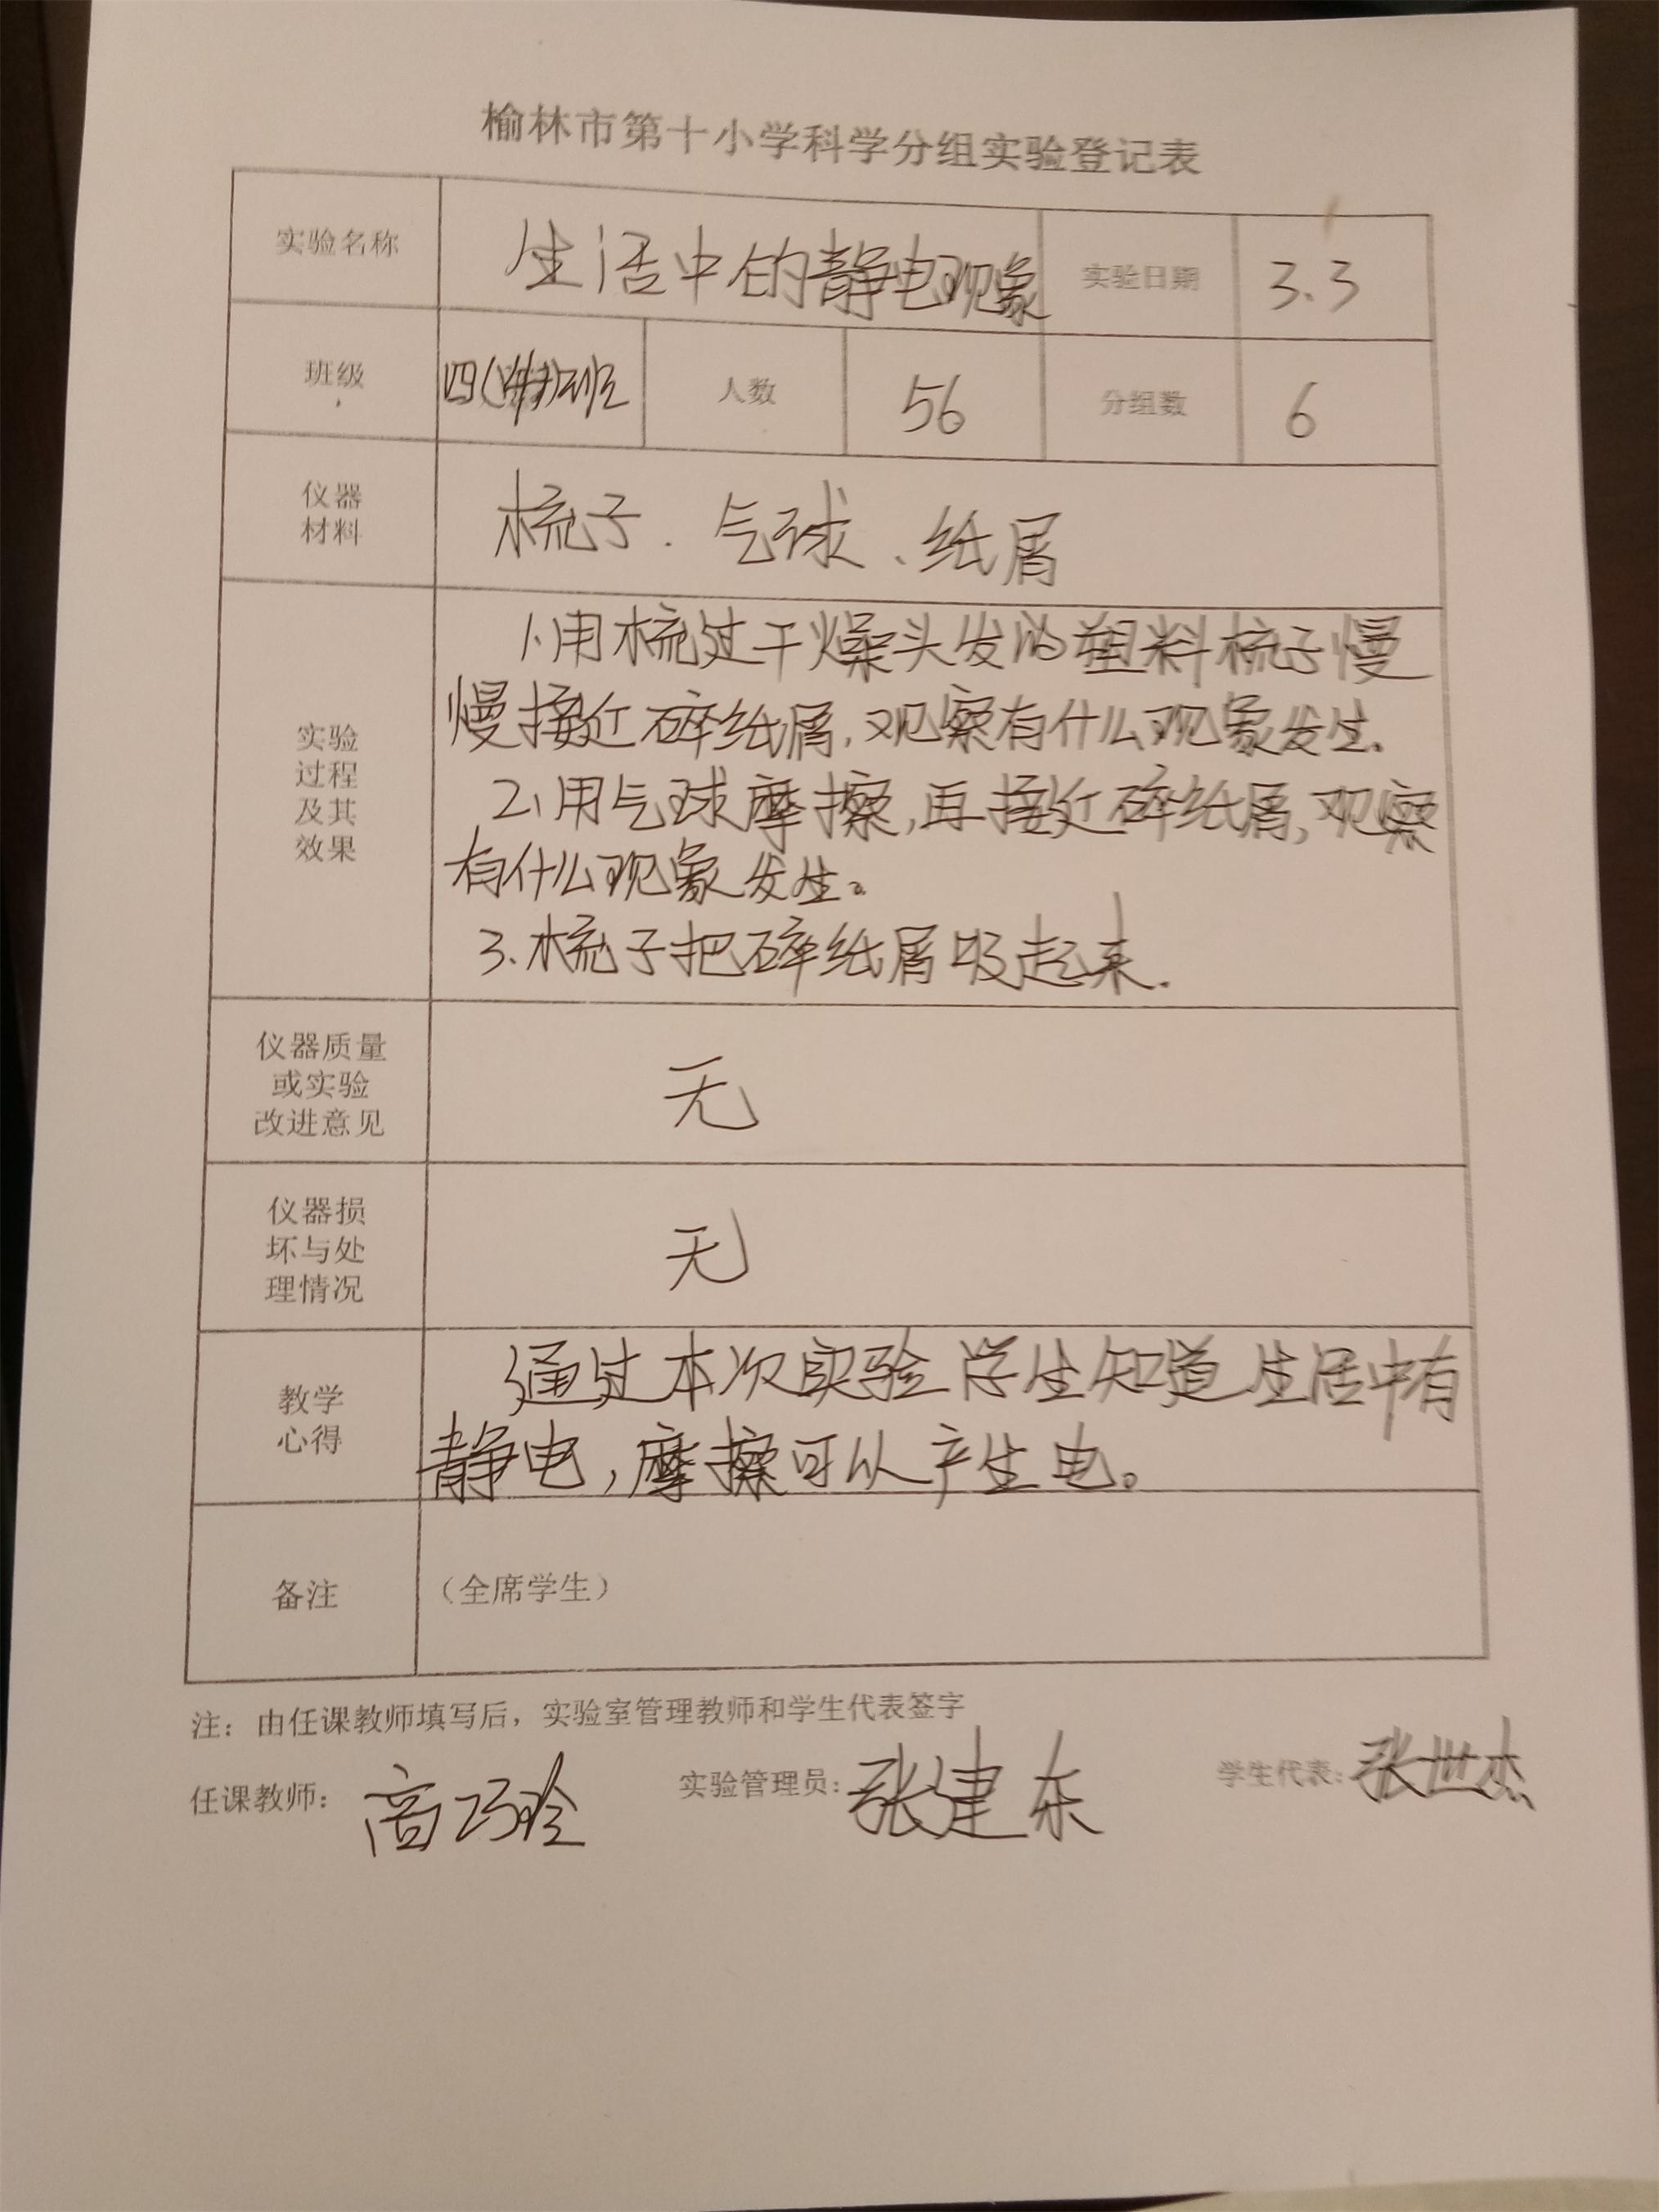 榆林市第十小学科学分组实验登记表
实验名称 生活中的静电现象 实验日期 3.3
班级 四( )班 人数 56 分组数 6
仪器
材料
梳子、气球、纸屑
实验
过程
及其
效果
1.用梳过干燥头发的塑料梳子慢
慢接近碎纸屑,观察有什么现象发生。
2、用气球摩擦,再接近碎纸屑,观察
有什么现象发生。
3.梳子把碎纸屑吸起来.
仪器质量
或实验
改进意见
无
仪器损
坏与处
理情况
无
教学
心得
通过本次实验学生知道生活中有
静电,摩擦可以产生电。
备注 (全席学生)
注:由任课教师填写后,实验室管理教师和学生代表签字
任课教师: 高巧玲 实验管理员: 张建东 学生代表: 张世杰